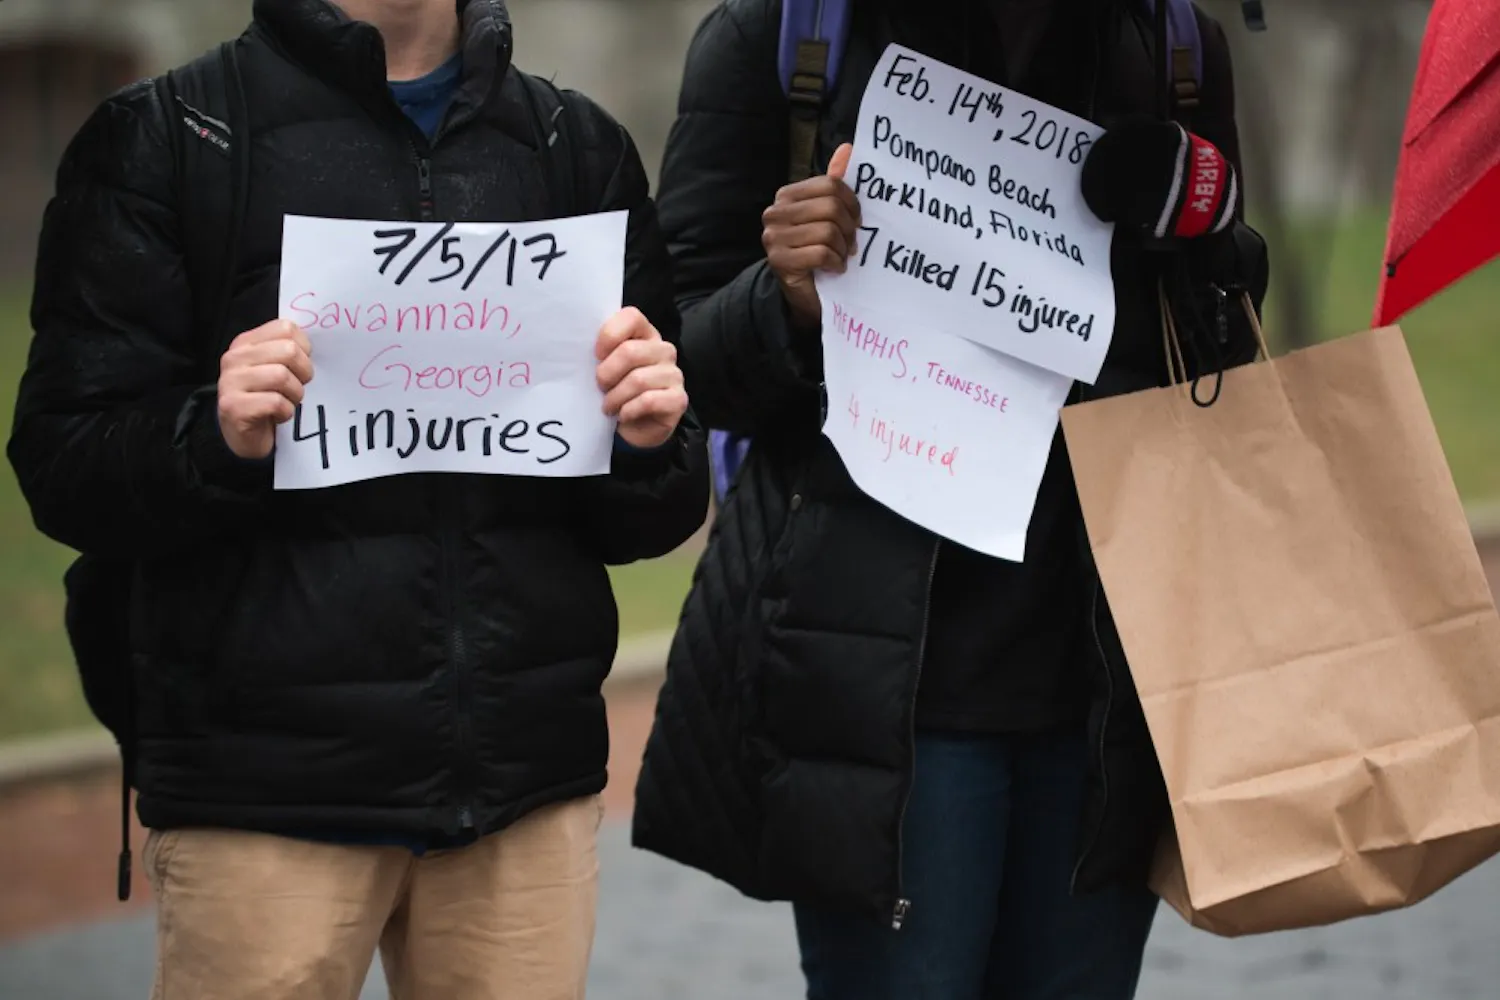 7/5/17
Savannah,
Georgia
4 injuries
Feb. 14th, 2018
Pompano Beach
Parkland, Florida
7 Killed 15 injured
MEMPHIS, TENNESSEE
4 injured
KIRBY